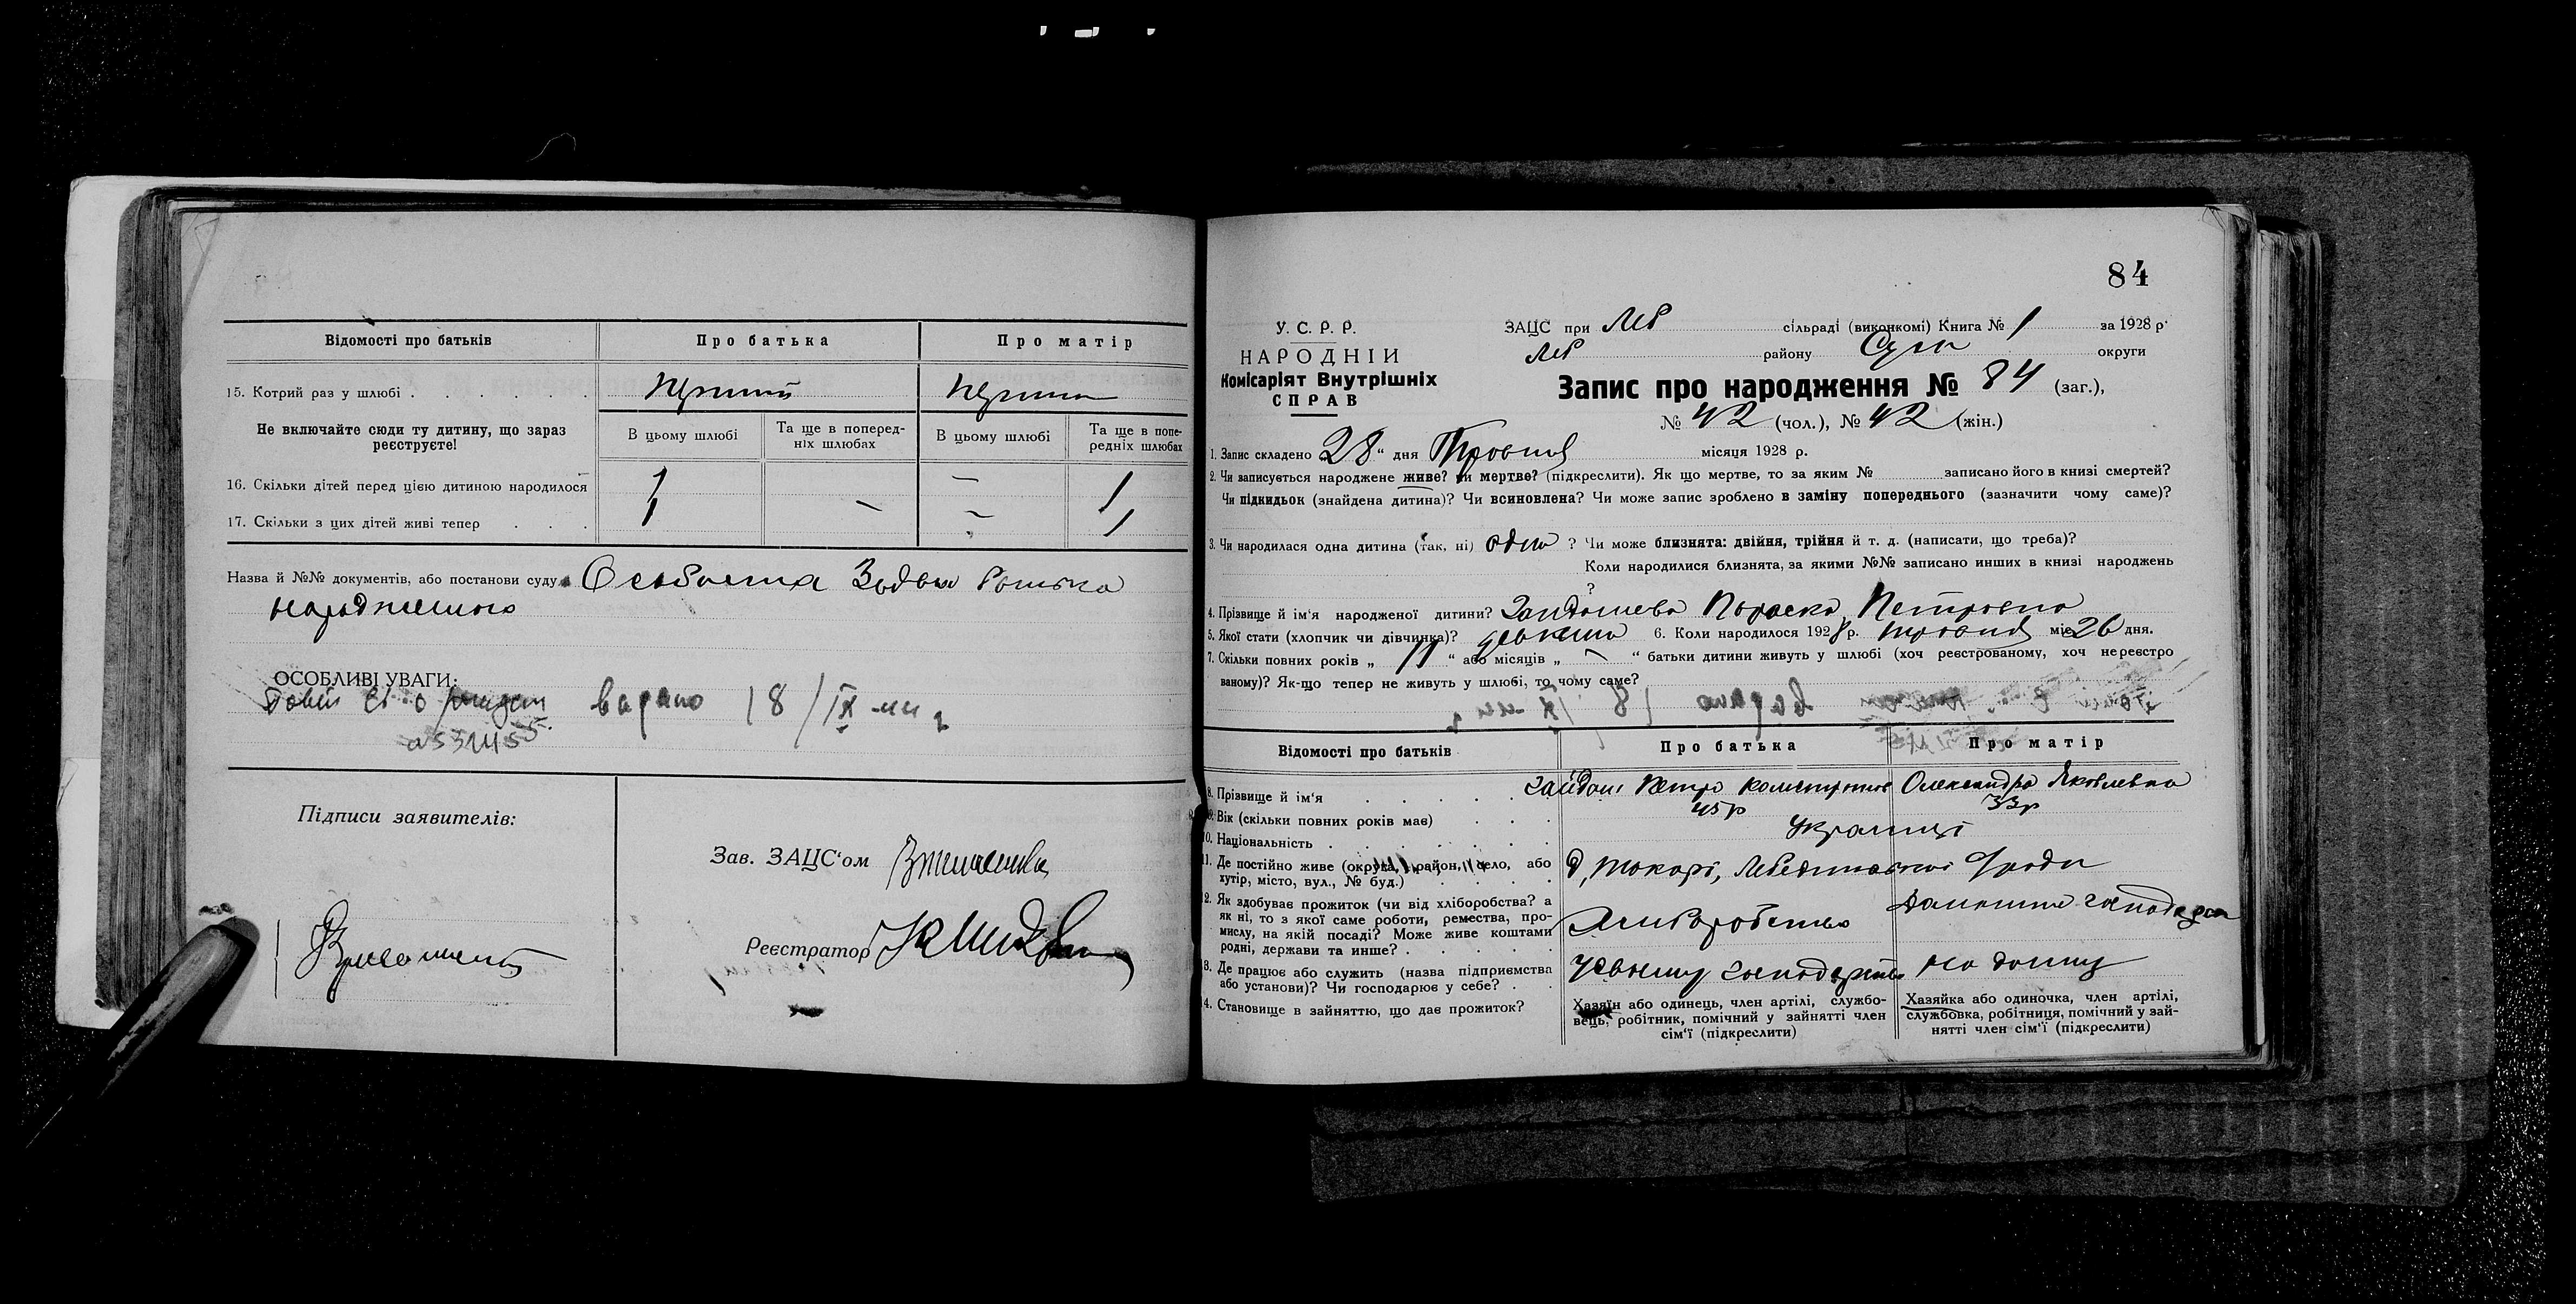 Відомості про батьків
Про батька
Про матір
15. Котрий раз у шлюбі . . . . . .
перший
перший
Не включайте сюди ту дитину, що зараз реєструєте!
В цьому шлюбі
Та ще в поперед-
ніх шлюбах
В цьому шлюбі
Та ще в попе-
редніх шлюбах
16. Скільки дітей перед цією дитиною народилося
1
—
1
17. Скільки з цих дітей живі тепер . . .
1
—
—
1
Назва й №№ документів, або постанови суду
народженого
ОСОБЛИВІ УВАГИ:
видано 18/IX
Підписи заявителів:
Зав. ЗАЦС'ом
Реєстратор
84
У. С. Р. Р.
НАРОДНІЙ
Комісаріят Внутрішніх
СПРАВ
ЗАЦС при Леб сільраді (виконкомі) Книга № 1 за 1928 р.
Леб району Сум округи
Запис про народження № 84 (заг.),
№ 42 (чол.), № 42 (жін.)
1. Запис складено „28“ дня Травня місяця 1928 р.
2. Чи записується народжене живе? чи мертве? (підкреслити). Як що мертве, то за яким № записано його в книзі смертей?
Чи підкидьок (знайдена дитина)? Чи всиновлена? Чи може запис зроблено в заміну попереднього (зазначити чому саме)?
3. Чи народилася одна дитина (так, ні) одна ? Чи може близнята: двійня, трійня й т. д. (написати, що треба)?
Коли народилися близнята, за якими №№ записано инших в книзі народжень
?
4. Прізвище й ім'я народженої дитини? Параска Петровна
5. Якої стати (хлопчик чи дівчинка)? 6. Коли народилося 1928 р. травня міс. 26 дня.
7. Скільки повних років „11“ або місяців „—“ батьки дитини живуть у шлюбі (хоч реєстрованому, хоч нереєстро
ваному)? Як-що тепер не живуть у шлюбі, то чому саме?
Відомості про батьків
Про батька
Про матір
8. Прізвище й ім'я . . . . .
Петро
Олександра Яковлевна
9. Вік (скільки повних років має) . . .
45 р
33 р
10. Національність . . . . . . .
Українці
11. Де постійно живе (округа, район, село, або
хутір, місто, вул., № буд.) . . . .
Токарі,
12. Як здобуває прожиток (чи від хліборобства? а
як ні, то з якої саме роботи, ремества, про-
мислу, на якій посаді? Може живе коштами
родні, держави та инше? . . . .
Хліборобство
Домашня господарка
13. Де працює або служить (назва підприємства
або установи)? Чи господарює у себе? . .
У своєму господарстві
на дому
14. Становище в зайняттю, що дає прожиток?
Хазяїн або одинець, член артілі, службо-
вець, робітник, помічний у зайнятті член
сім'ї (підкреслити)
Хазяйка або одиночка, член артілі,
службовка, робітниця, помічний у зай-
нятті член сім'ї (підкреслити)